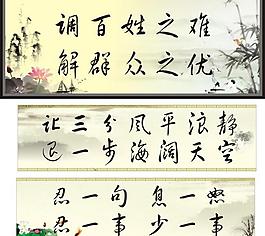 调百姓之难
解群众之优
让三分风平浪静
退一步海阔天空
忍一句息一怒
忍一事少一事